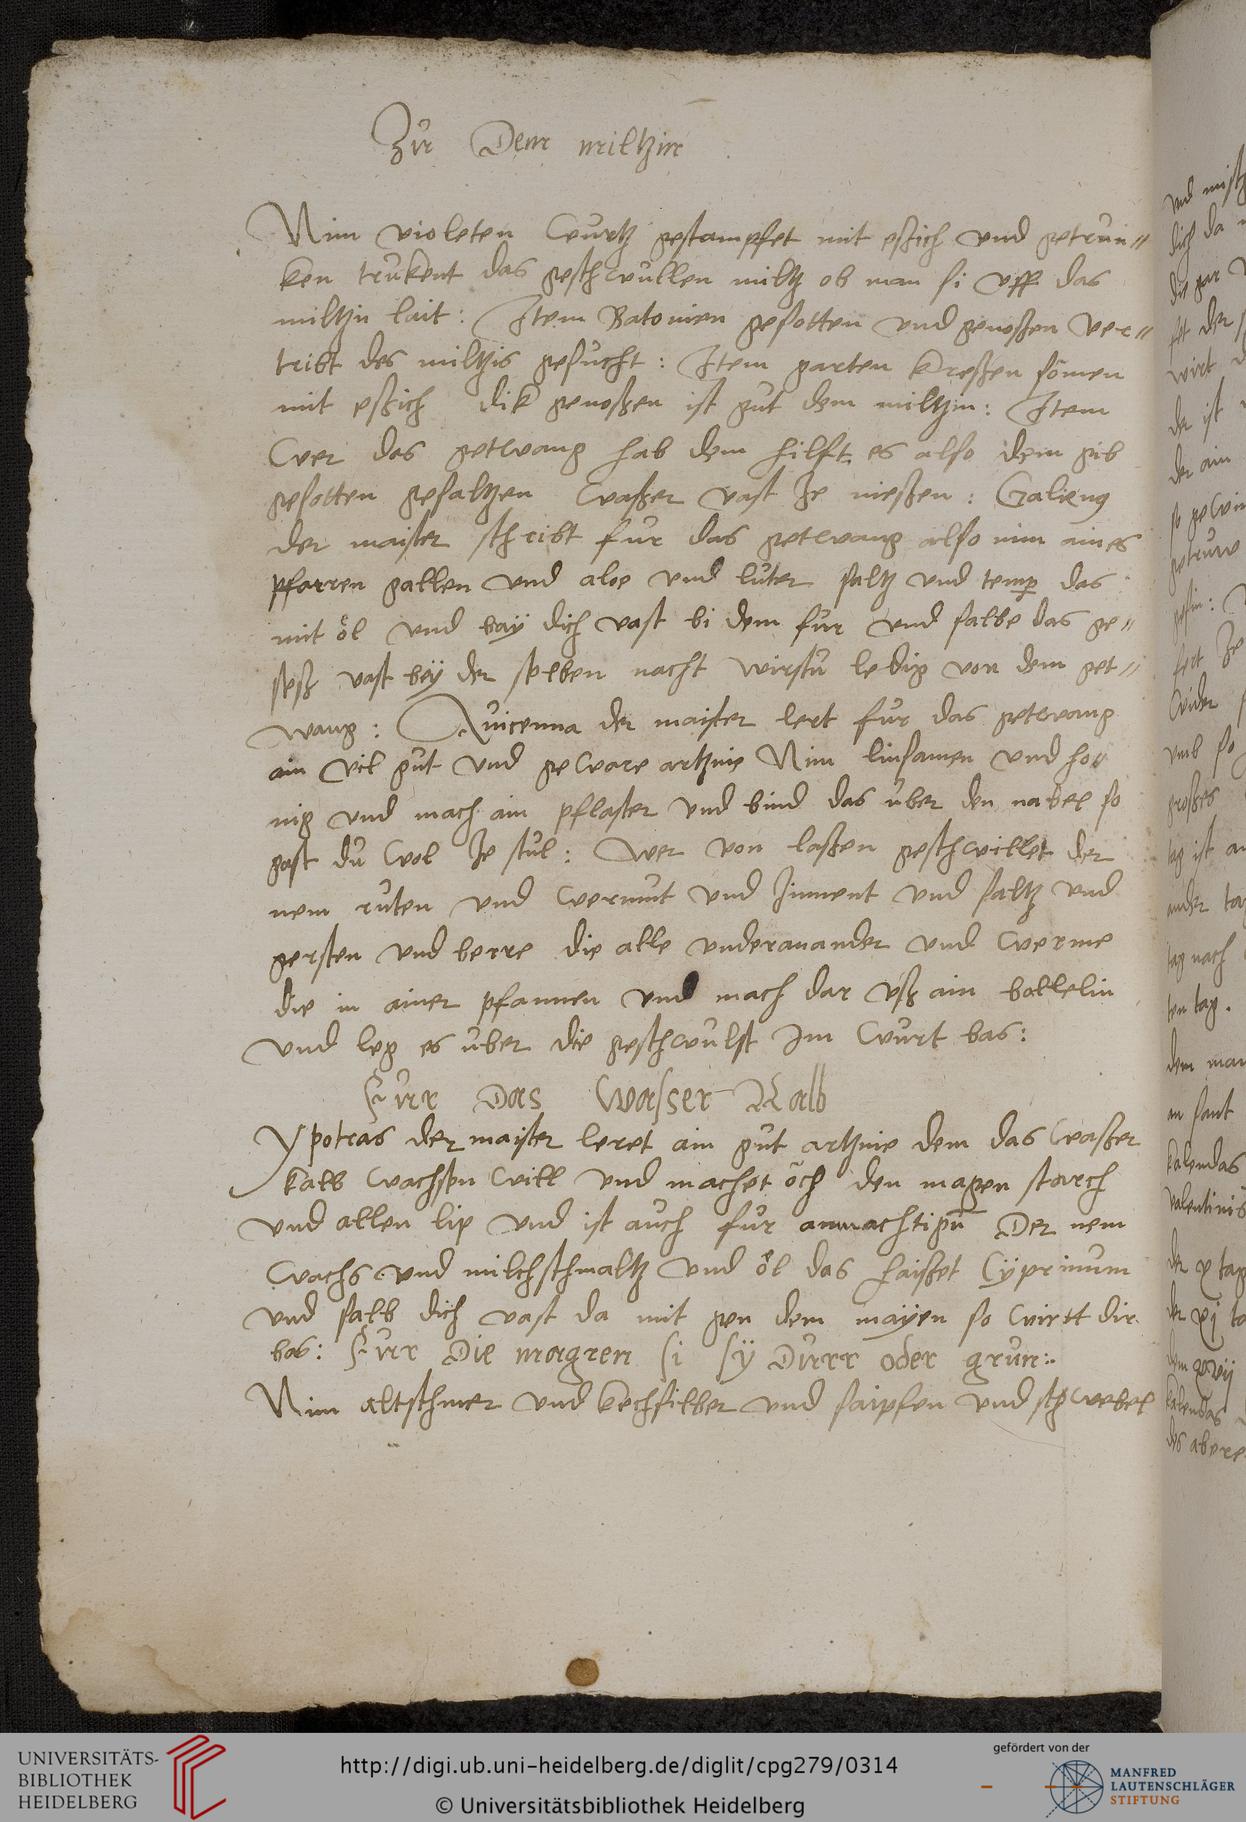 Zu Dem miltzin
Nim violeten wurtz gestampfet mit essich und getrun„
ken trukent das geschwullen miltz ob man si uff das
miltzin lait: Item Batonien gesotten und genossen ver„
tribt des miltzis gesucht: Item garten kressen somen
mit essich dik genossen ist gut dem miltzin: Item
wer das getwang hab dem hilft es also dem gib
gesotten gesaltzen wasser vast ze niessen: Galienus
der maister schribt fur das getwang also nim aines
pfarren gallen und aloe und luter saltz und temper das
mit öl und bay dich vast bi dem fur und salbe das ge„
sess vast bey der selben nacht wirstu ledig von dem get„
wang: Auicenna der maister lert fur das getwang
ain vil gut und geware artznie Nim linsamen und ho
nig und mach ain pflaster und bind das uber den nabel so
gast du wol ze stul: wer von lassen geschwillet der
nem ruten und wermut und und saltz und
gersten und berre die alle underananander und werme
die in ainer pfannen und mach dar uss ain bollelin
und leg es uber die geschwulst Im wurt bas:
Fur Das Wasser Kalb
Ypotras der maister leret ain gut artznie dem das wasser
kalb wachsen will und machet öch den magen starch
und allen lip und ist auch fur anmachtigū Der nem
wachs und milchschmaltz und öl das haisset Cyprinum
und salb dich vast da mit gen dem mayen so wirtt dir
bas: Fur Die magren si sÿ Durr oder grun:
Nim altschmer und kechsilber und saipfen und schwebel
und
dich da
die gar
fet der
wirt
der ist
der ain
getruw
wider
umb so
grosses
tag ist
ander tag
tag nach
ten tag.
dem man
an sant
kalendas
valentinis
der x tag
der xj
kalendas
des abere
UNIVERSITÄTS-
BIBLIOTHEK
HEIDELBERG
http://digi.ub.uni-heidelberg.de/diglit/cpg279/0314
© Universitätsbibliothek Heidelberg
gefördert von der
MANFRED
LAUTENSCHLÄGER
STIFTUNG